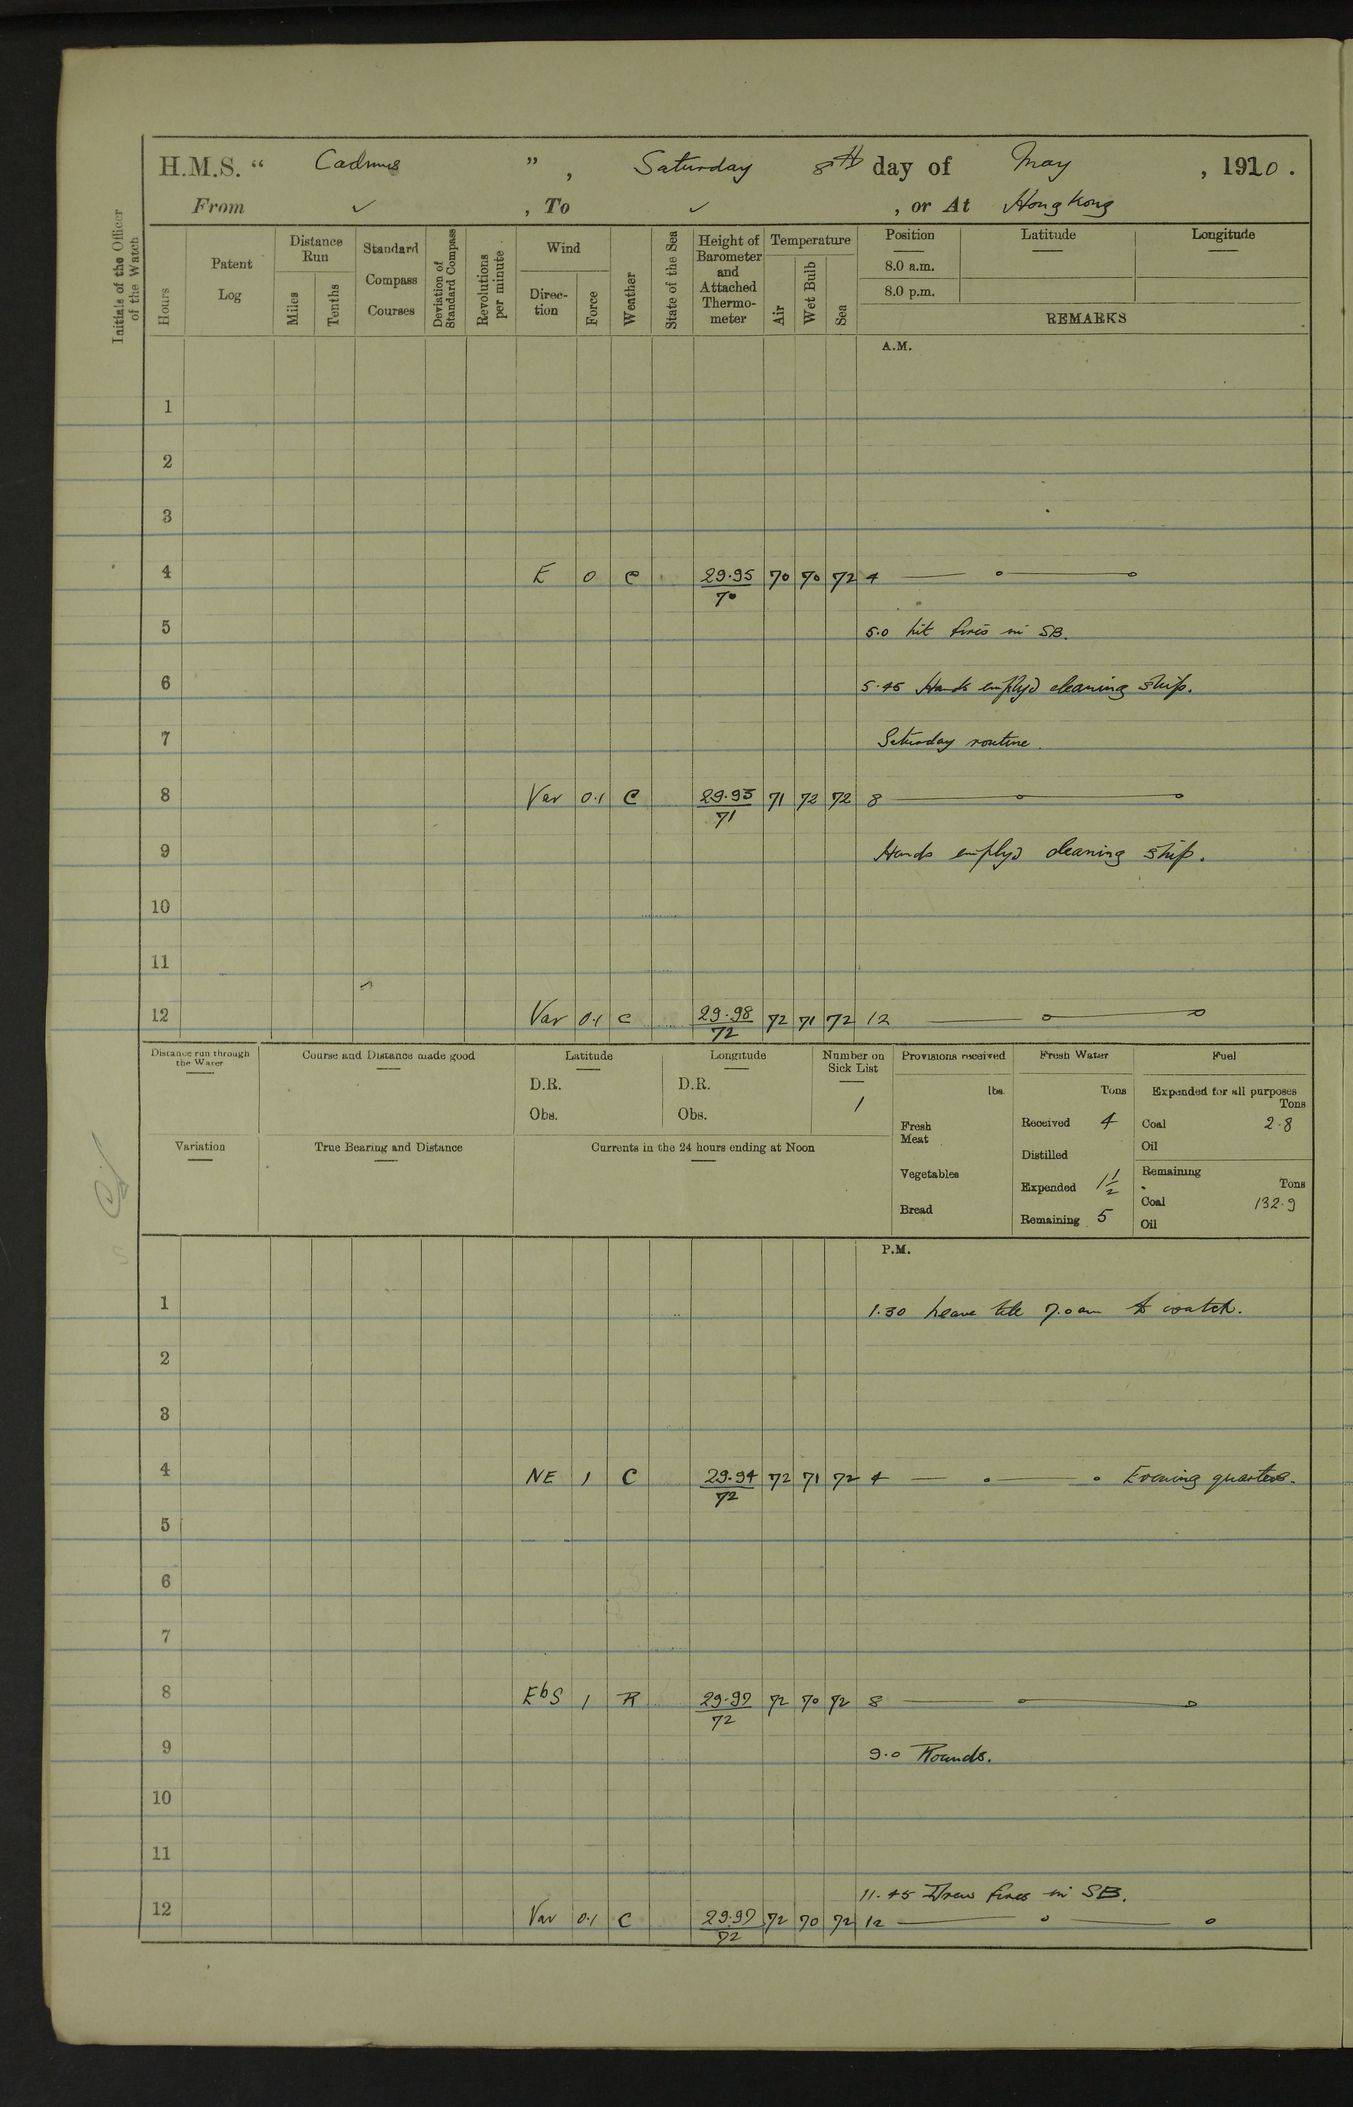 H.M.S. “ Cadmus ” , Saturday 8th day of May , 1910 .
From ✓ , To ✓ , or At Hong Kong
Initials of the Officer of the Watch
Hours
Patent Log
Distance Run
Miles
Tenths
Standard Compass Courses
Deviation of Standard Compass
Revolutions per minute
Wind
Direc-tion
Force
Weather
State of the Sea
Height of Barometer and Attached Thermo-meter
Temperature
Air
Wet Bulb
Sea
Position Latitude Longitude
8.0 a.m.
8.0 p.m.
REMARKS
A.M.
1
2
3
4 E 0 C 29.95/70 70 70 72 4
5 5.0 lit fires in SB.
6 5.45 Hands employd cleaning ship.
7 Saturday routine.
8 Var 0.1 C 29.95/71 71 72 72 8
9 Hands employd cleaning ship.
10
11
12 Var 0.1 C 29.98/72 72 71 72 12
Distance run through the Water
Course and Distance made good
Latitude
D.R.
Obs.
Longitude
D.R.
Obs.
Number on Sick List
1
Variation
True Bearing and Distance
Currents in the 24 hours ending at Noon
Provisions received
lbs.
Fresh Meat
Vegetables
Bread
Fresh Water
Tons
Received 4
Distilled
Expended 1½
Remaining 5
Fuel
Expended for all purposes
Tons
Coal 2.8
Oil
Remaining
Tons
Coal 132.9
Oil
P.M.
1 1.30 Leave till 7.0am to watch.
2
3
4 NE 1 C 29.94/72 72 71 72 4 Evening quarters.
5
6
7
8 EbS 1 R 29.97/72 72 70 72 8
9 9.0 Rounds.
10
11
11.45 Drew fires in SB.
12 Var 0.1 C 29.97/72 72 70 72 12